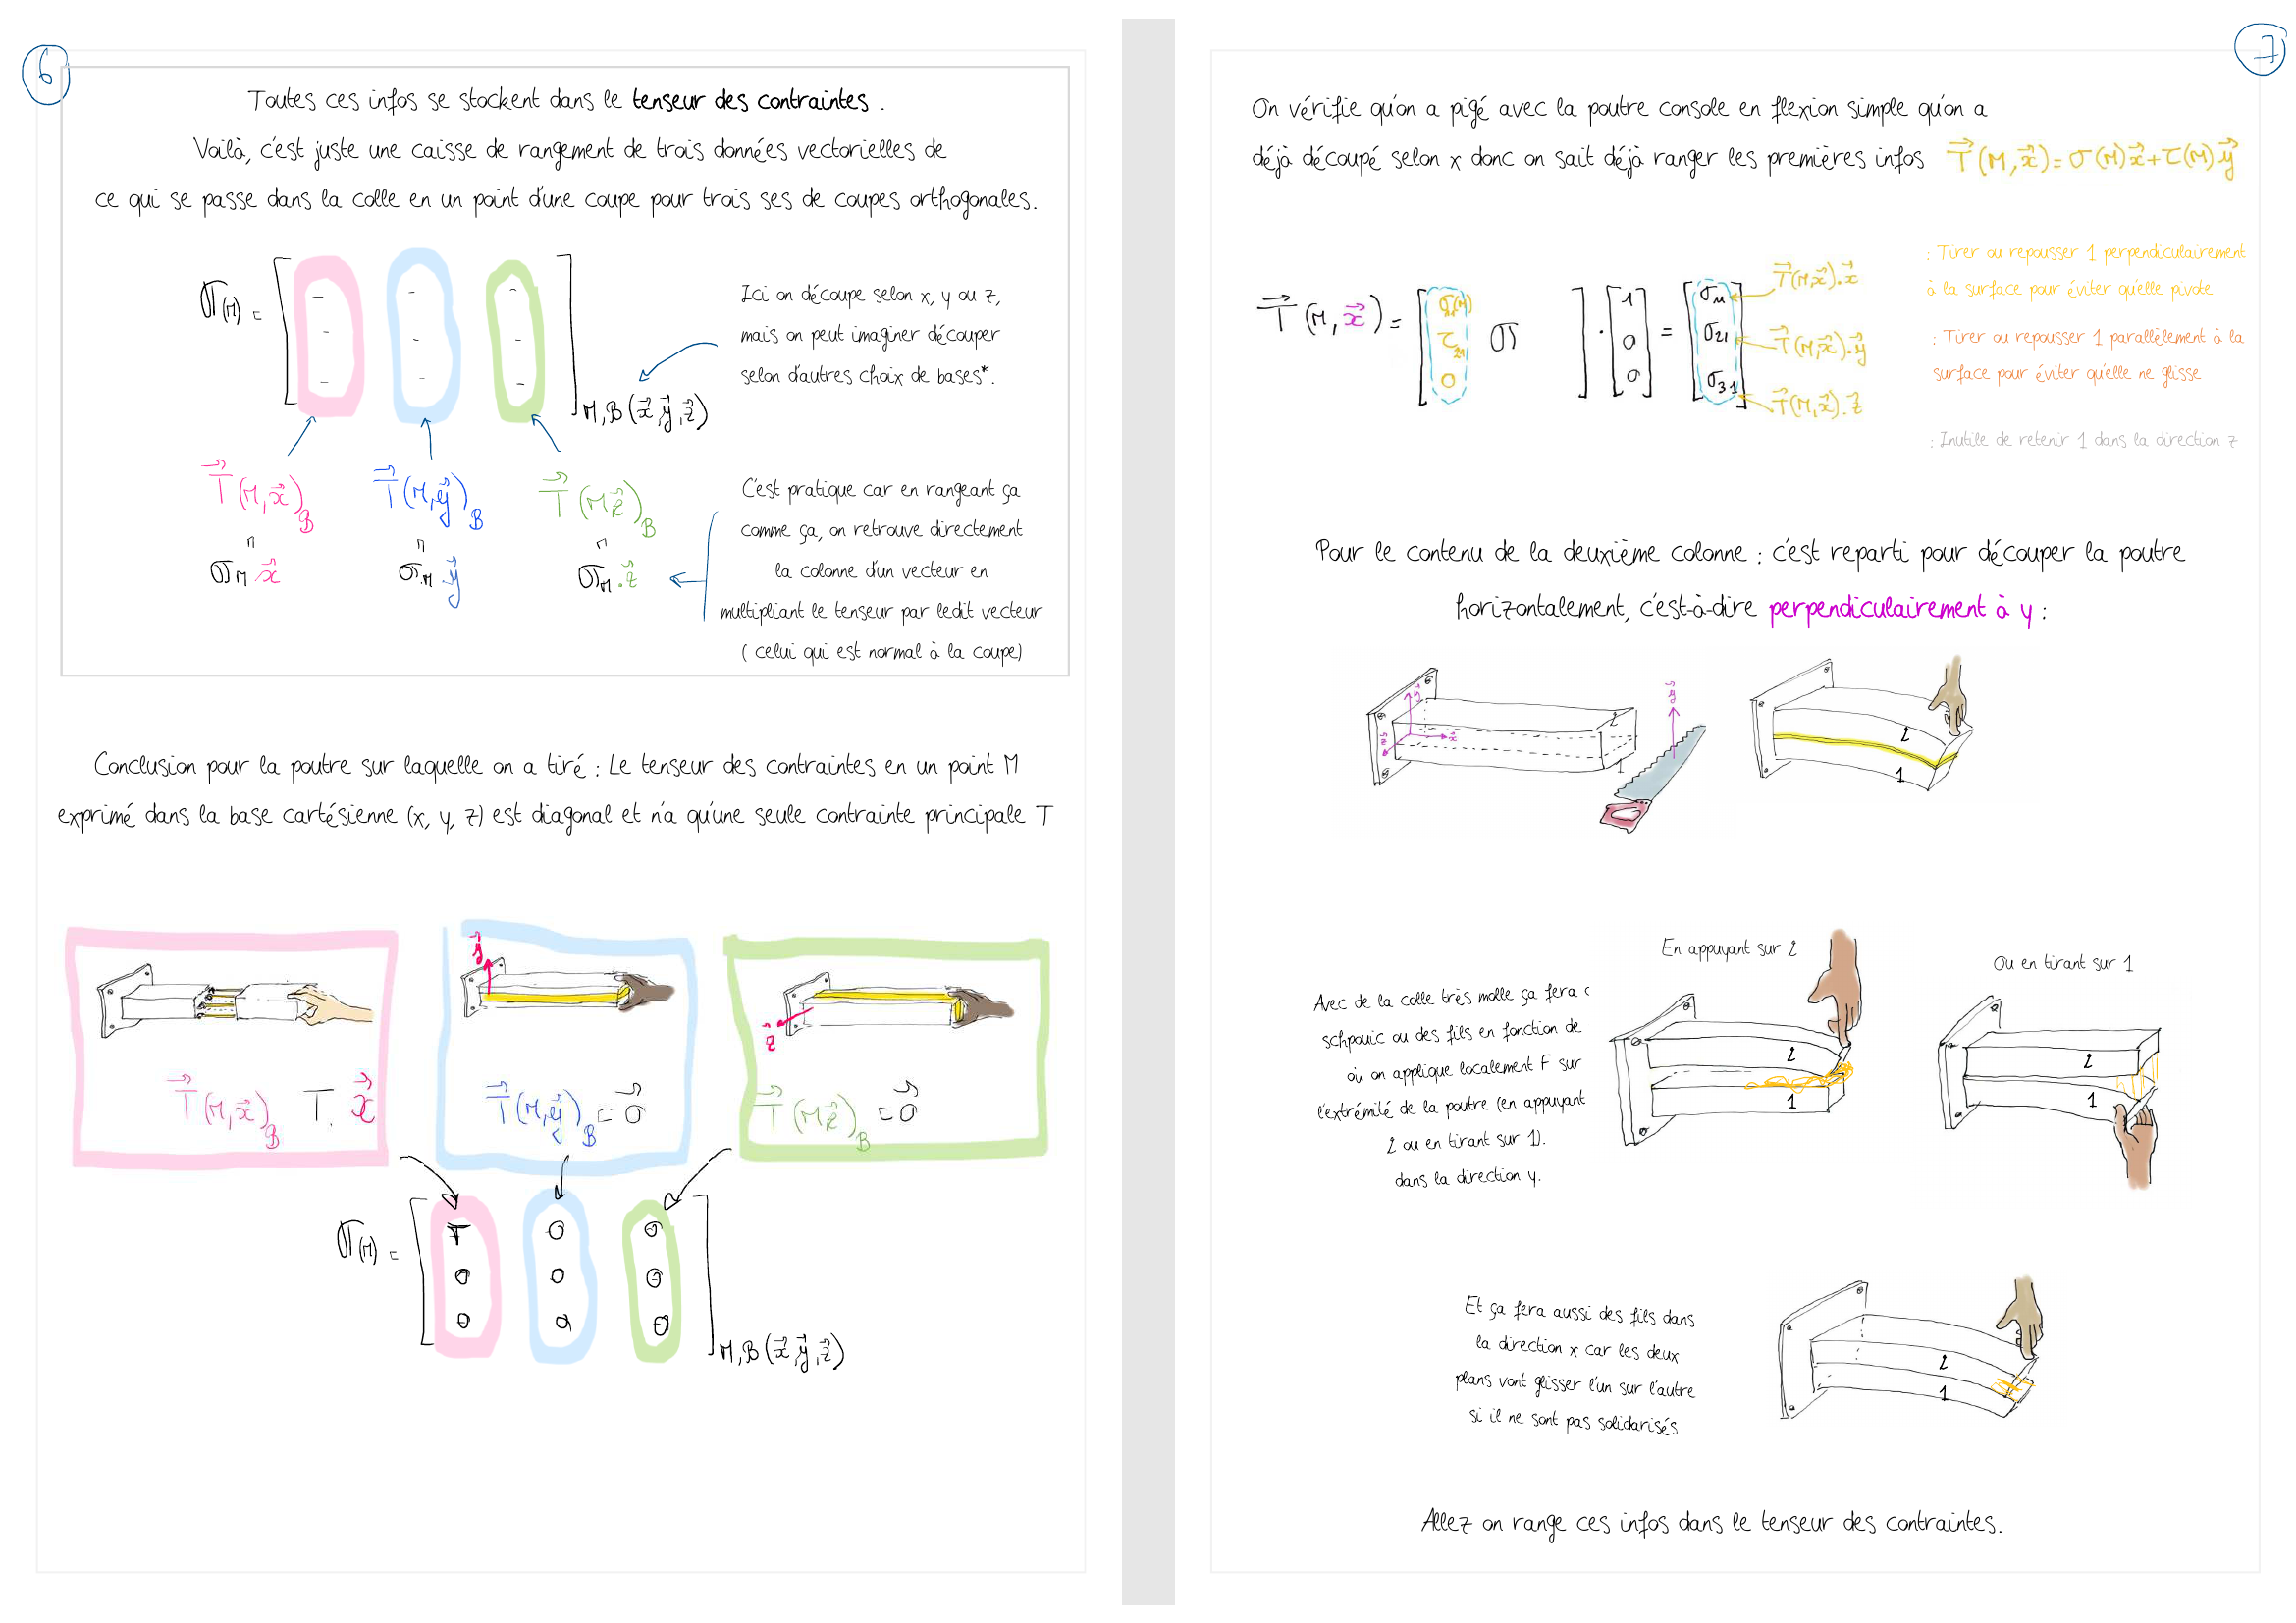 6
Toutes ces infos se stockent dans le tenseur des contraintes .
Voilà, c'est juste une caisse de rangement de trois données vectorielles de
ce qui se passe dans la colle en un point d'une coupe pour trois ses de coupes orthogonales.
σ(M) = [ ] M,B(x⃗,y⃗,z⃗)
Ici on découpe selon x, y ou z,
mais on peut imaginer découper
selon d'autres choix de bases*.
T⃗(M,x⃗)B T⃗(M,y⃗)B T⃗(M,z⃗)B
=σM.x⃗ =σM.y⃗ =σM.z⃗
C'est pratique car en rangeant ça
comme ça, on retrouve directement
la colonne d'un vecteur en
multipliant le tenseur par ledit vecteur
( celui qui est normal à la coupe)
Conclusion pour la poutre sur laquelle on a tiré : Le tenseur des contraintes en un point M
exprimé dans la base cartésienne (x, y, z) est diagonal et n'a qu'une seule contrainte principale T
y⃗
z⃗
T⃗(M,x⃗)B T. x⃗
T⃗(M,y⃗)B = 0⃗
T⃗(M,z⃗)B = 0⃗
σ(M) = [ T 0 0
0 0 0
0 0 0 ] M,B(x⃗,y⃗,z⃗)
7
On vérifie qu'on a pigé avec la poutre console en flexion simple qu'on a
déjà découpé selon x donc on sait déjà ranger les premières infos T⃗(M,x⃗)=σ(M)x⃗+τ(M)y⃗
: Tirer ou repousser 1 perpendiculairement
à la surface pour éviter qu'elle pivote
: Tirer ou repousser 1 parallèlement à la
surface pour éviter qu'elle ne glisse
: Inutile de retenir 1 dans la direction z
T⃗(M,x⃗) = [ σ11(M) τ21 0 σ ] . [ 1 0 0 ] = [ σ11 σ21 σ31 ]
T⃗(M,x⃗).x⃗
T⃗(M,x⃗).y⃗
T⃗(M,x⃗).z⃗
Pour le contenu de la deuxième colonne : c'est reparti pour découper la poutre
horizontalement, c'est-à-dire perpendiculairement à y :
y⃗
x⃗
z⃗
2
1
y⃗
2
1
En appuyant sur 2
Ou en tirant sur 1
Avec de la colle très molle ça fera c
schpouic ou des fils en fonction de
où on applique localement F sur
l'extrémité de la poutre (en appuyant
2 ou en tirant sur 1).
dans la direction y.
2
1
2
1
Et ça fera aussi des fils dans
la direction x car les deux
plans vont glisser l'un sur l'autre
si il ne sont pas solidarisés
2
1
Allez on range ces infos dans le tenseur des contraintes.